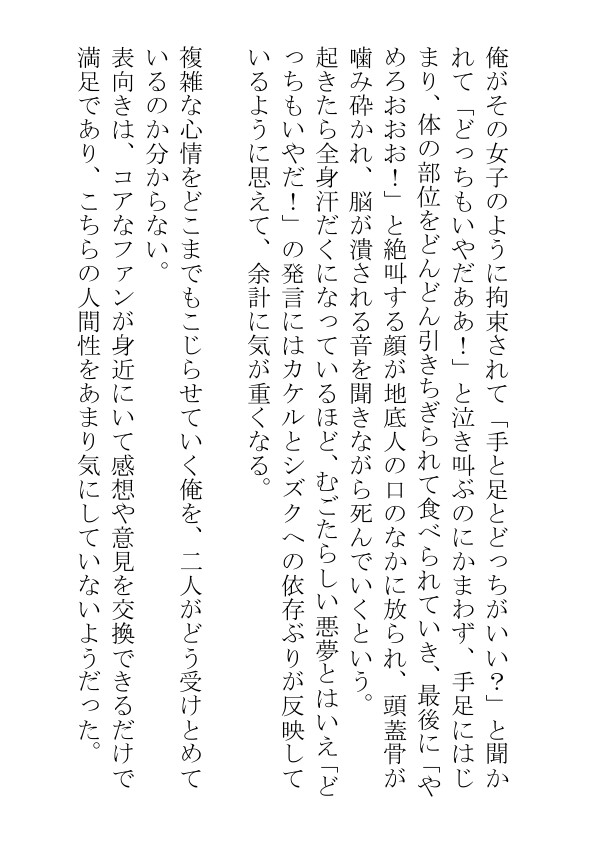 俺がその女子のように拘束されて「手と足とどっちがいい？」と聞か
れて「どっちもいやだああ！」と泣き叫ぶのにかまわず、手足にはじ
まり、体の部位をどんどん引きちぎられて食べられていき、最後に「や
めろおおお！」と絶叫する顔が地底人の口のなかに放られ、頭蓋骨が
噛み砕かれ、脳が潰される音を聞きながら死んでいくという。
起きたら全身汗だくになっているほど、むごたらしい悪夢とはいえ「ど
っちもいやだ！」の発言にはカケルとシズクへの依存ぶりが反映して
いるように思えて、余計に気が重くなる。
複雑な心情をどこまでもこじらせていく俺を、二人がどう受けとめて
いるのか分からない。
表向きは、コアなファンが身近にいて感想や意見を交換できるだけで
満足であり、こちらの人間性をあまり気にしていないようだった。